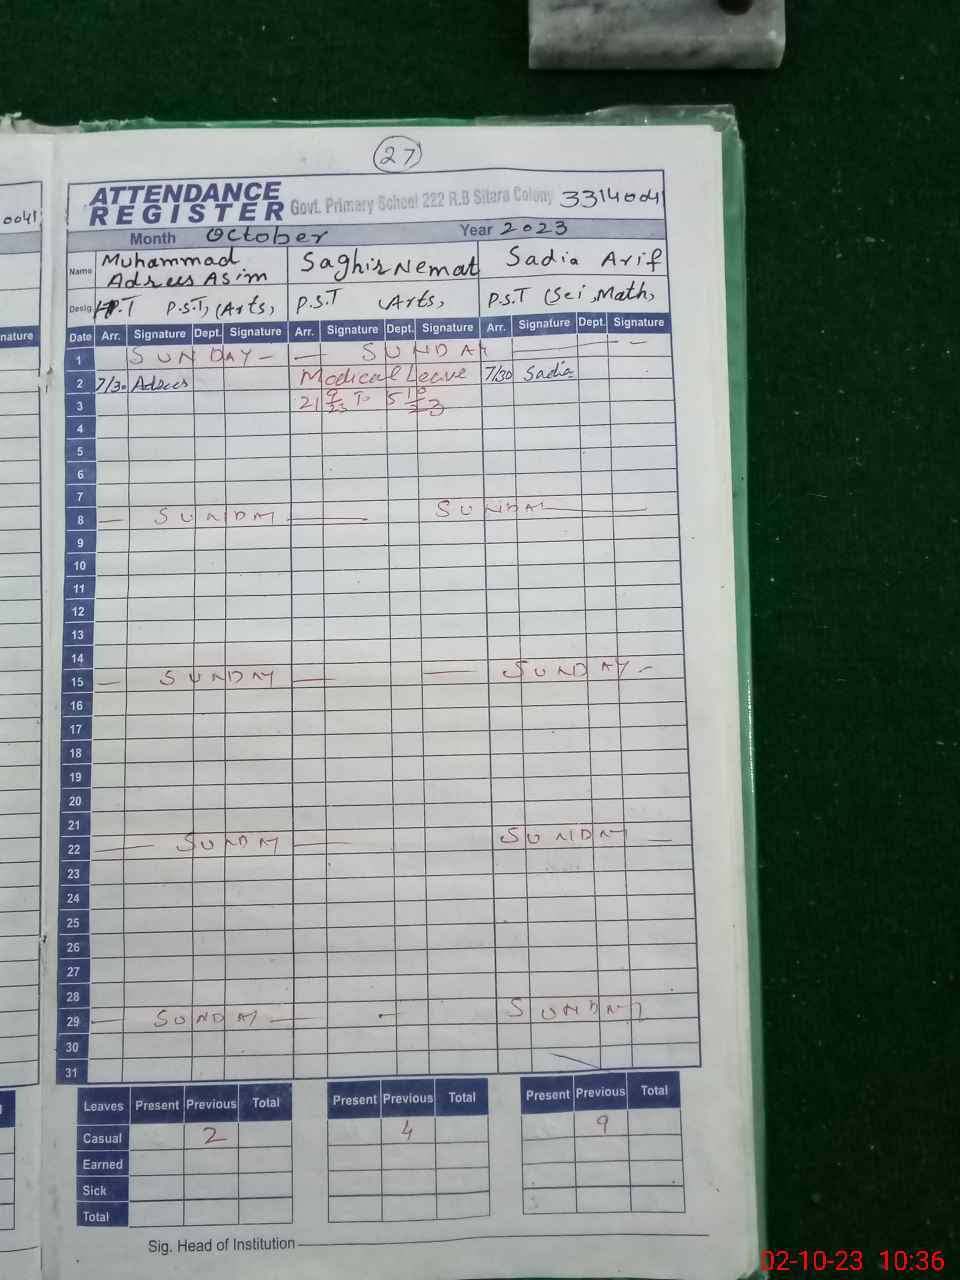 27
ATTENDANCE
REGISTER Govt. Primary School 222 R.B Sitara Colony 3314004
0041
Month October Year 2023
Name Muhammad Adrees Asim Saghir Nemat Sadia Arif
Desig. H.T P.S.T, (Arts, P.S.T (Arts, P.S.T (Sci, Math,
nature Date Arr. Signature Dept. Signature Arr. Signature Dept. Signature Arr. Signature Dept. Signature
1 SUNDAY - — SUNDAY — - -
2 7/30 Adrees Medical Leave 7/30 Sadia
3 21 9/23 To 5 10/23
4
5
6
7
8 — SUNDAY — SUNDAY —
9
10
11
12
13
14
15 — SUNDAY — — SUNDAY -
16
17
18
19
20
21
22 — SUNDAY — SUNDAY —
23
24
25
26
27
28
29 — SUNDAY — - SUNDAY
30
31
Leaves Present Previous Total Present Previous Total Present Previous Total
Casual 2 4 9
Earned
Sick
Total
Sig. Head of Institution
02-10-23 10:36